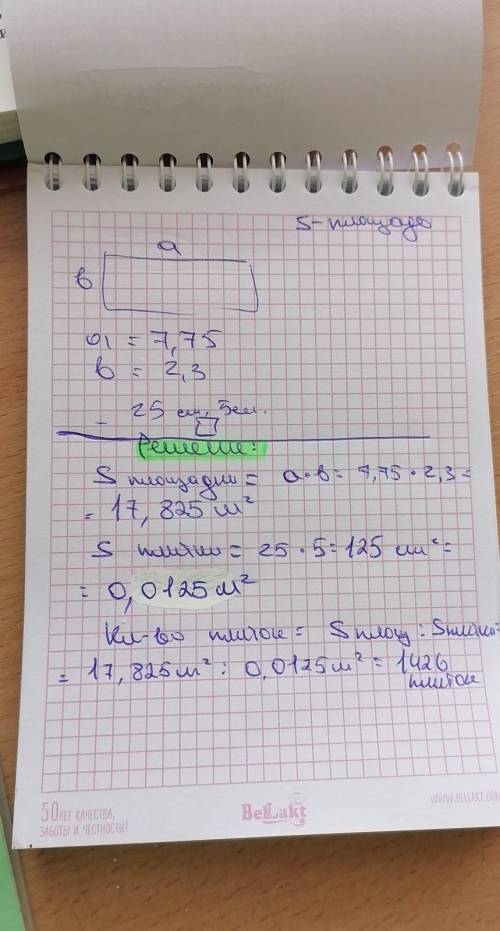 S - площадь
а
в
а = 7,75
в = 2,3
- 25 см, 5см.
Решение:
S площадки = а·в = 7,75 · 2,3 =
= 17,825 м²
S плитки = 25 · 5 = 125 см² =
= 0,0125 м²
Кл-во плиток = S площ : S плитки
= 17,825 м² : 0,0125 м² = 1426
плиток
50 ЛЕТ КАЧЕСТВА,
ЗАБОТЫ И ЧЕСТНОСТИ!
BelLakt
WWW.BELLAKT.COM